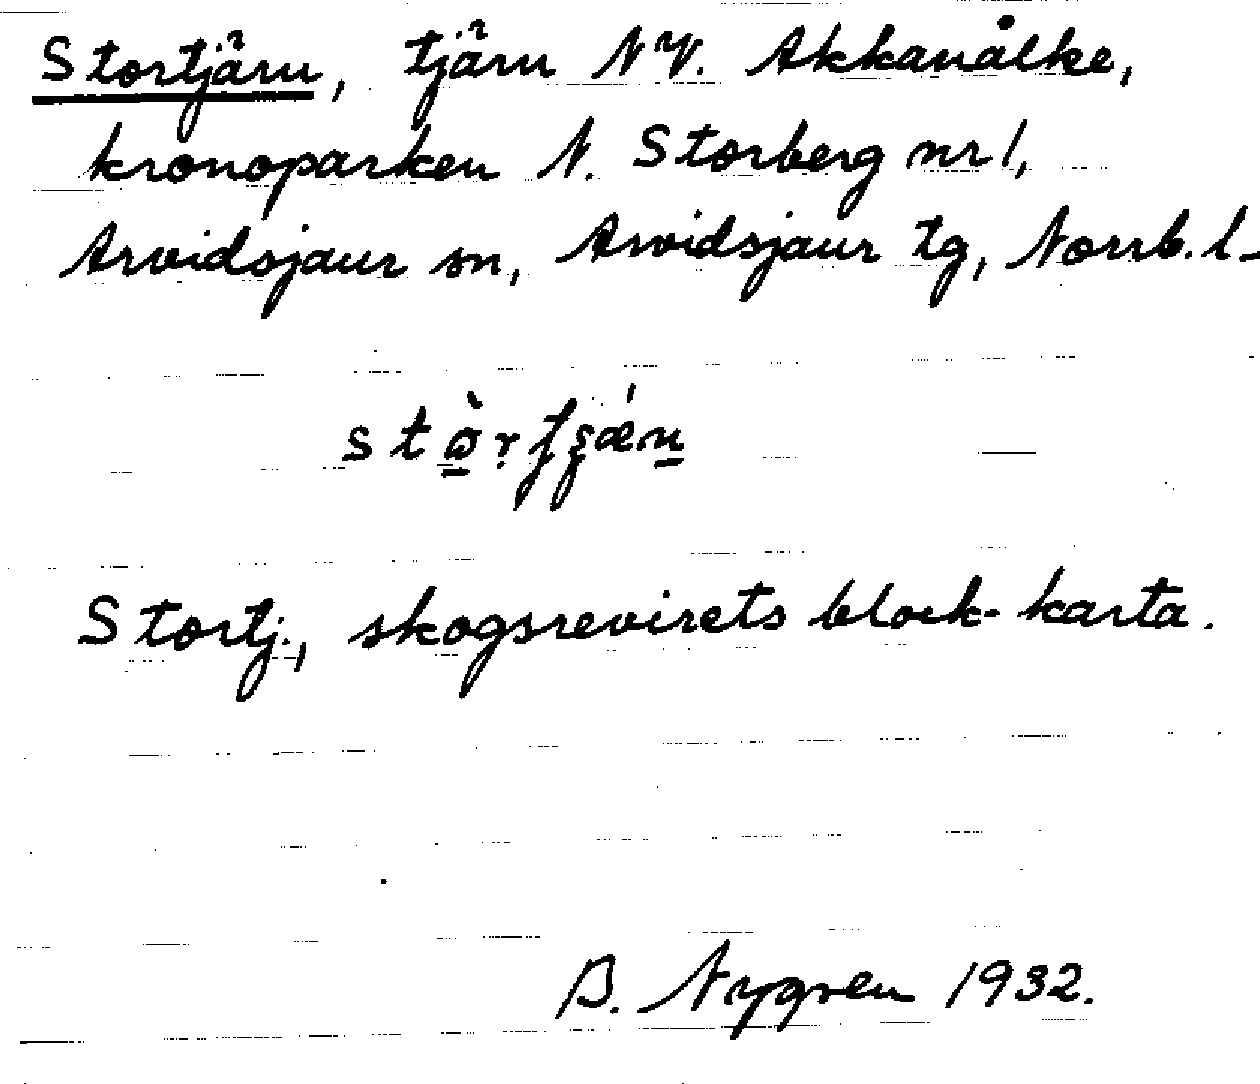 Stortjärn, tjärn NV. Akkanålke,
kronoparken N. Storberg nr 1,
Arvidsjaur sn, Arvidsjaur tg, Norrb. l-
Stortj., skogsrevirets block-karta.
B. Nygren 1932.